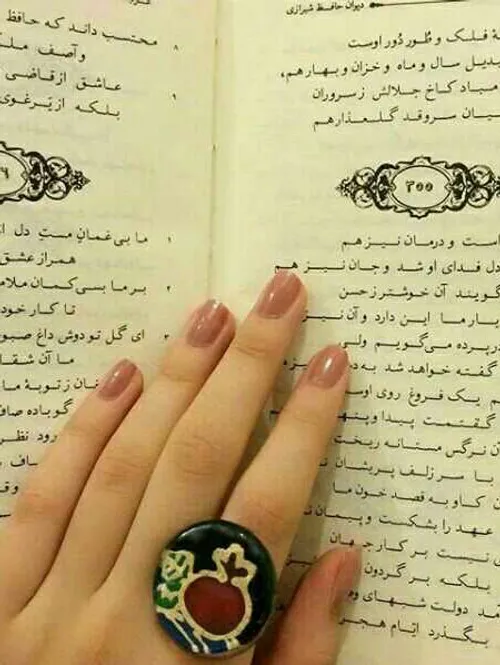 دیوان حافظ شیرازی
فلک و طور دور اوست
سال و ماه و خزان و بهار هم،
مباد کاخ جلالش ز سروران
سروقد گلعذار هم
۳۵۵
است و درمان نیز هم
دل فدای او شد و جان نیز هم
گویند آن خوشتر ز حسن
یار ما این دارد و آن نیز
در پرده می‌گویم ولی
گفته خواهد شد به
یک فروغ روی
گفتمت پیدا و
نرگس مستانه ریخت
با سر زلف پریشان
کاو به قصد خون ما
عهد را بشکست و پیمان
نیست بر کار جهان
بلکه بر گردون
دولت شبهای
بگذرد ایّام هجر
۸ محتسب داند که حافظ
و آصف
۹ عاشق از قاضی
بلکه از یَرغوی
۱ ما بی غمان مستِ دل از
همراز عشق
۲ بر ما بسی کمان
تا کار خود
۳ ای گل تو دوش داغ
ما آن
ز توبهٔ ما
گو باده
رود نظر